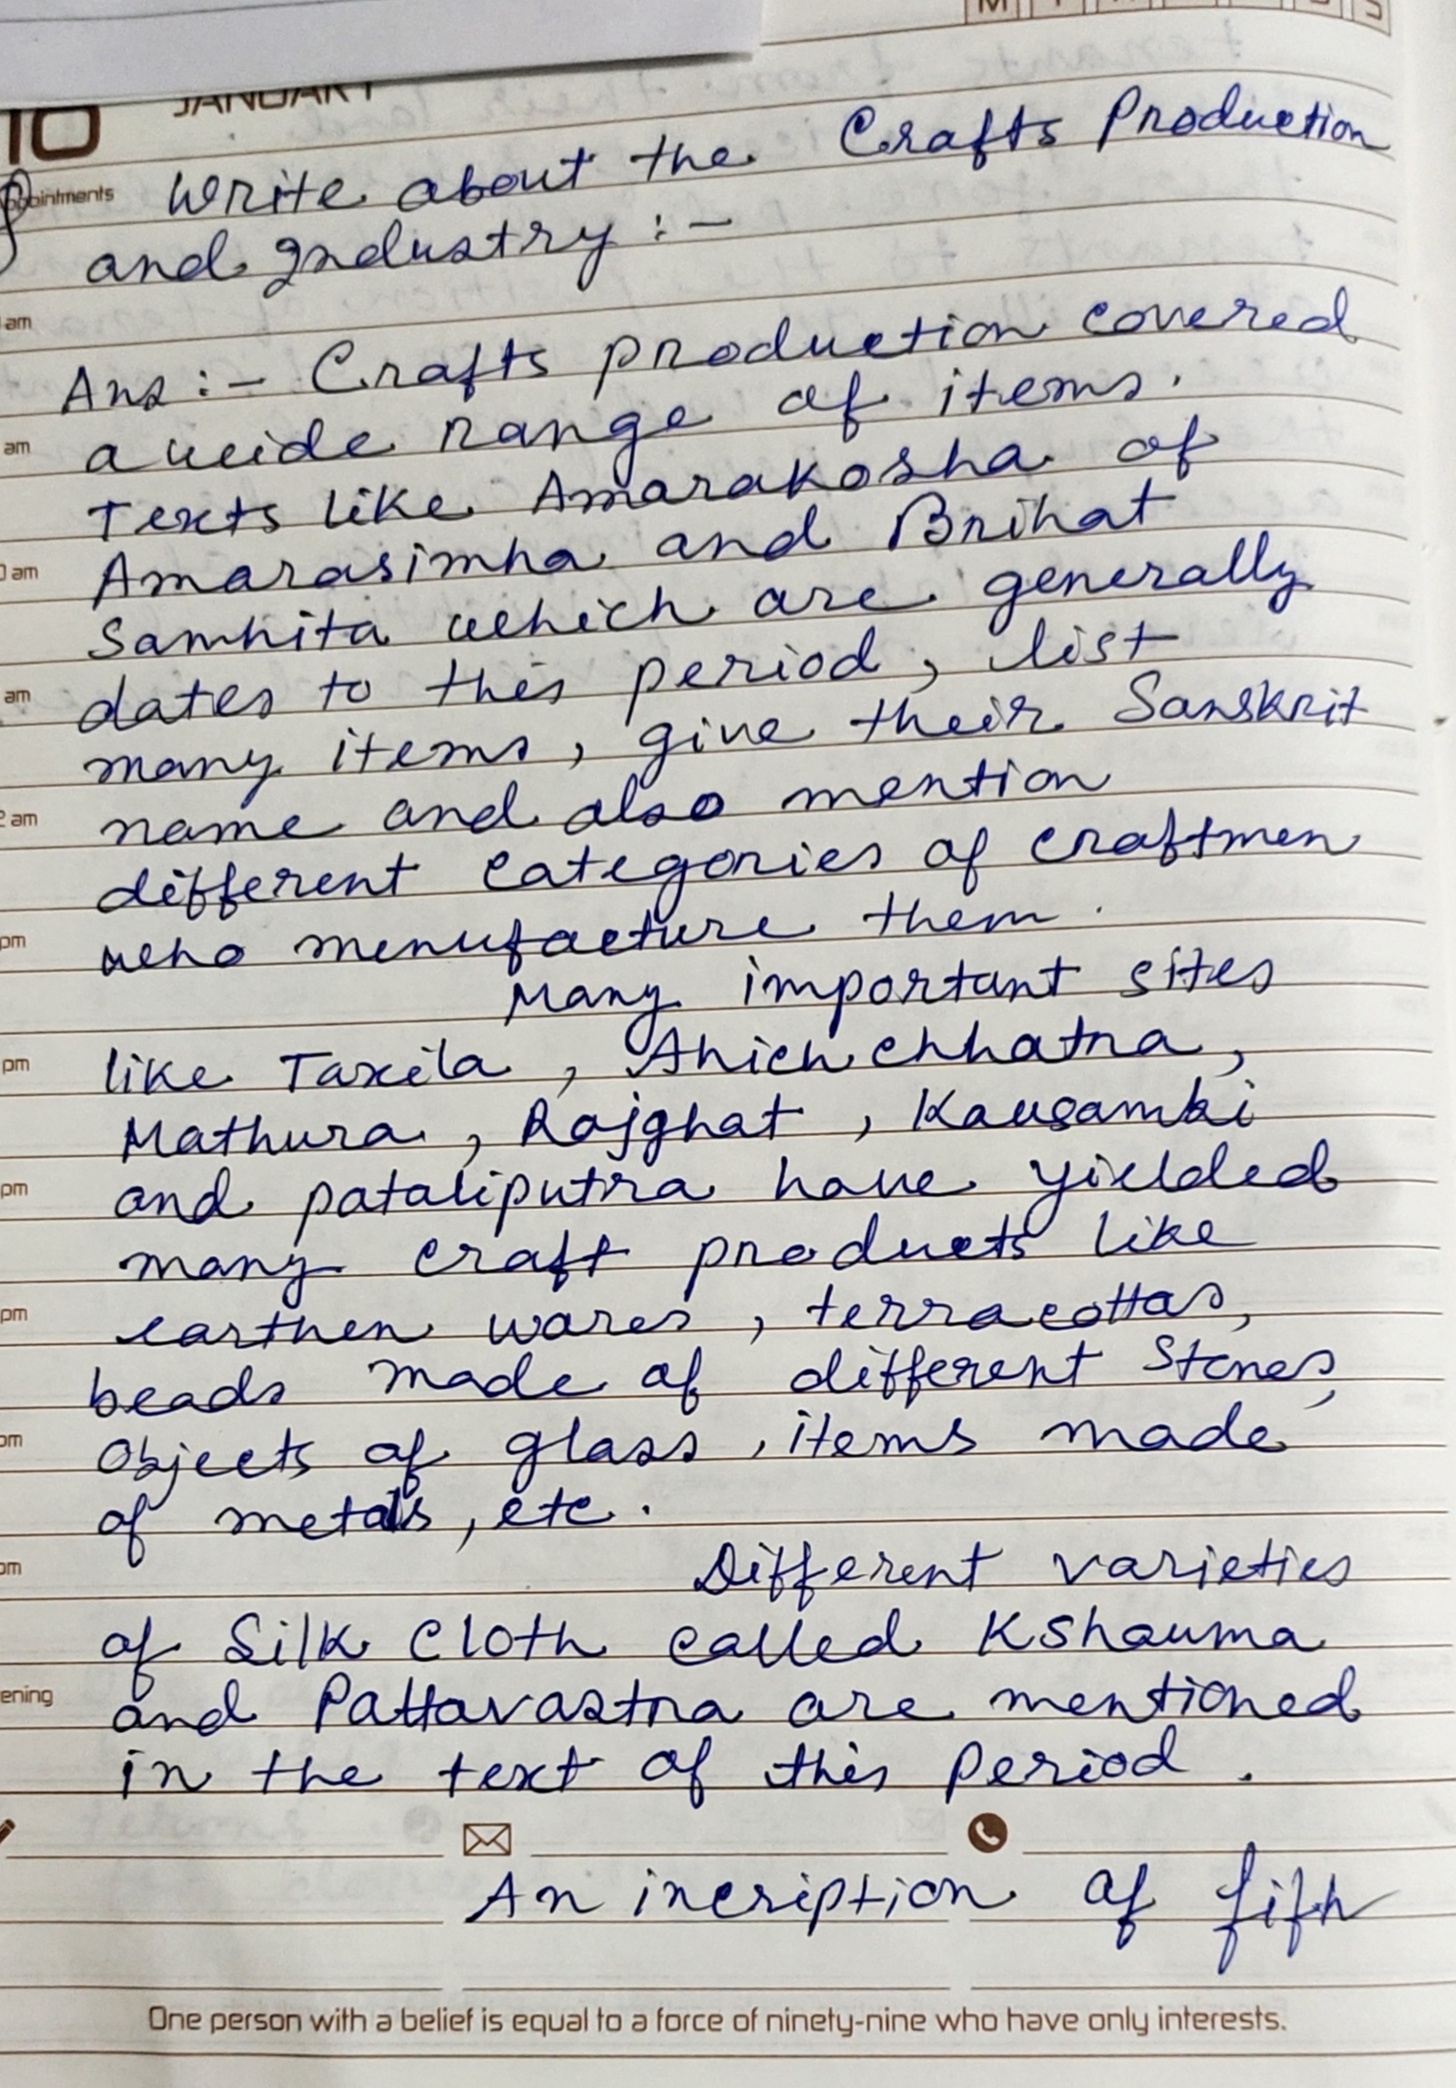 10 JANUARY
Appointments
Write about the Crafts Production
and Industry :-
am
Ans :- Crafts production covered
am
a wide range of items.
Texts like Amarakosha of
am
Amarasimha and Brihat
Samhita which are generally
am
dates to this period, list
many items, give their Sanskrit
am
name and also mention
different categories of craftmen
pm
who menufacture them.
Many important sites
pm
like Taxila, Ahichchhatra,
Mathura, Rajghat, Kausambi
pm
and pataliputra have yielded
many craft products like
pm
earthen wares, terracottas,
beads made of different stones,
pm
objects of glass, items made
of metals, etc.
pm
Different varieties
of Silk cloth called Kshauma
ening
and Pattavastra are mentioned
in the text of this period.
An incription of fifh
One person with a belief is equal to a force of ninety-nine who have only interests.